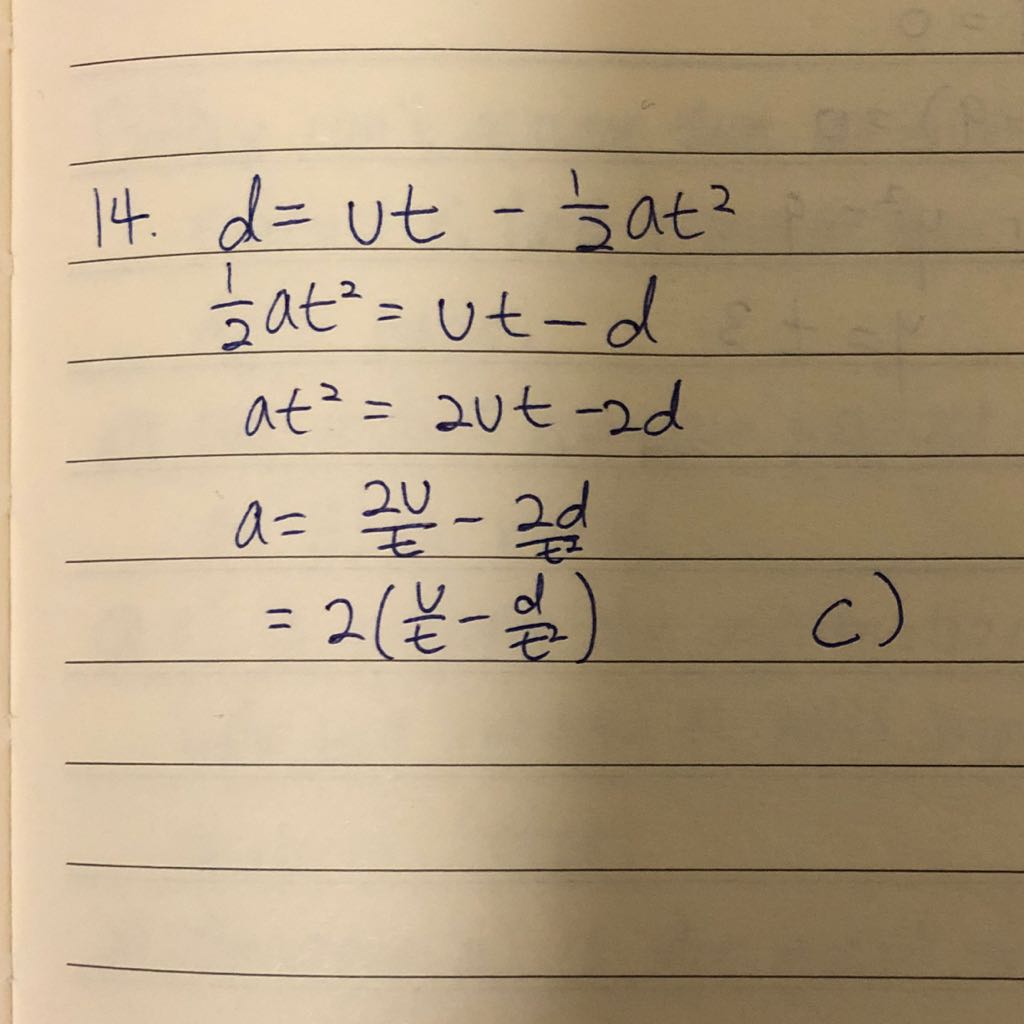 14. d = vt - 1/2 at²
1/2 at² = vt - d
at² = 2vt - 2d
a = 2v/t - 2d/t²
= 2(v/t - d/t²) C)